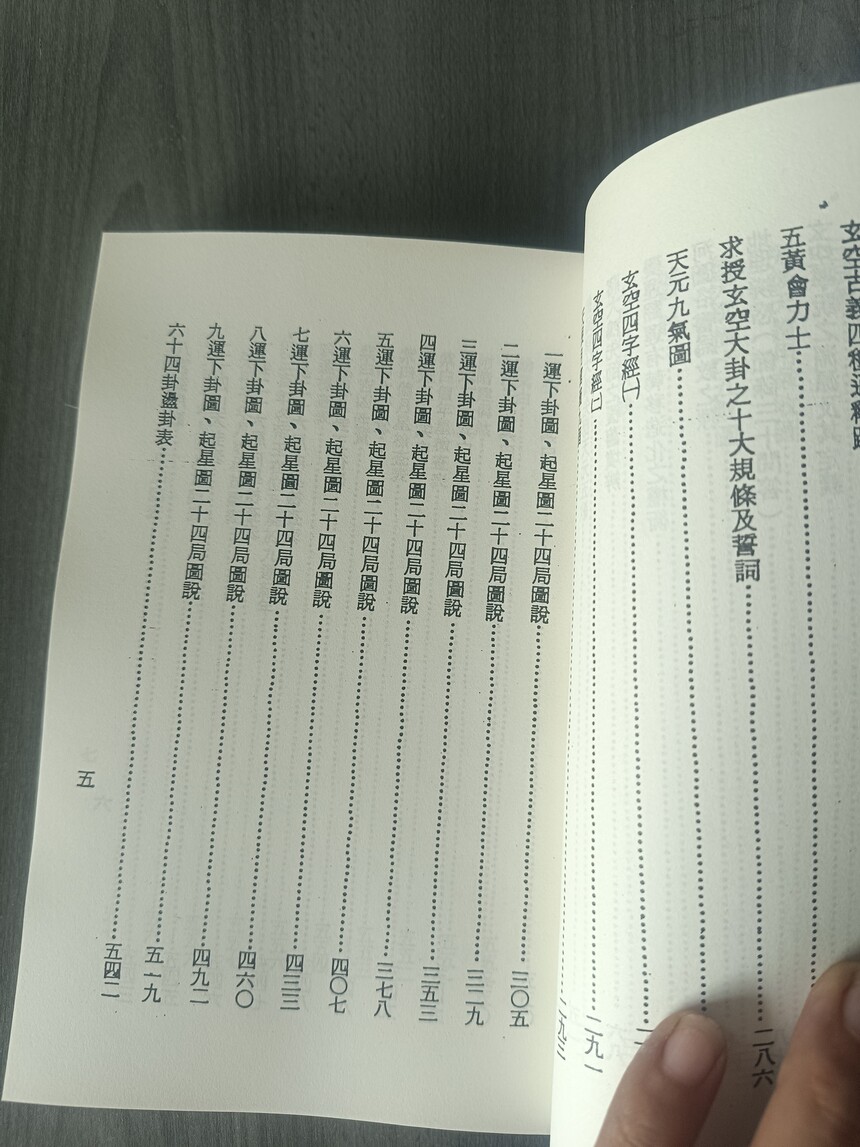 玄空古義四種通釋
五黃會力士
求授玄空大卦之十大規條及誓詞 二八六
天元九氣圖
玄空四字經㈠
玄空四字經㈡ 二九一
二九三
一運下卦圖、起星圖二十四局圖說 三〇五
二運下卦圖、起星圖二十四局圖說 三二九
三運下卦圖、起星圖二十四局圖說 三五三
四運下卦圖、起星圖二十四局圖說 三七八
五運下卦圖、起星圖二十四局圖說 四〇七
六運下卦圖、起星圖二十四局圖說 四三三
七運下卦圖、起星圖二十四局圖說 四六〇
八運下卦圖、起星圖二十四局圖說 四九二
九運下卦圖、起星圖二十四局圖說 五一九
六十四卦盪卦表 五四二
五